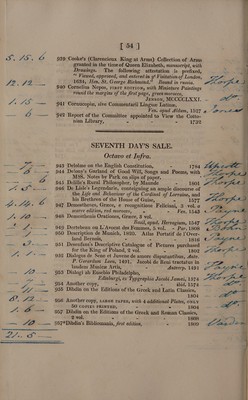 [ 54 ]
5.15.6 939 Cooke's (Clarencieux King at Arms) Collection of Arms
granted in the time of Queen Elizabeth, manuscript, with
Drawings. The following attestation is prefixed,
" Viewed, approved, and entered in ye Visitation of London,
1634, Hen. St. George Richmond." Bound in russia. Thorpe
12.12 940 Cornelius Nepos, FIRST EDITION, with Miniature Paintings
round the margins of the first page, green morocco,
JENSON, MCCCCLXXI.
1.15 941 Cornucopiæ, sive Commentarii Linguæ Latinæ,
Ven. apud Aldum, 1527
942 Report of the Committee appointed to View the Cotto-
nian Library, 1732
SEVENTH DAY'S SALE.
Octavo et Infra.
943 Delolme on the English Constitution, 1794
944 Delony's Garland of Good Will, Songs and Poems, with
MSS. Notes by Park on slips of paper.
945 Delille's Rural Philosopher, by Maunde 1801
946 De Lisle's Legendarie, contayning an ample discourse of
the Life and Behaviour of Charles Cardinal of Lorraine, and
his Brethren of the House of Guise, 1577 Thorpe
4.14.6 947 Demosthenes, Græce, e recognitione Feliciani, 3 vol. a
neuve edition, red morocco, Ven. 1543 Payne
1.10 948 Demosthenis Orationes, Græce, 3 vol.
apud. Hervagium, 1547
949 Dertelsen on L'Amour des Femmes, 2 vol. Par. 1808
950 Description de Munich, 1625. Atlas Portatif de l'Over-
land Bernois, 1816
951 Desenfans's Descriptive Catalogue of Pictures purchased
for the King of Poland, 2 vol.
952 Dialogus de Nese et Juvene de amore disputantibus, Aute.
P. Goveriano Lusa, 1491, Jacobi de Reni tractatus in
laudem Musice Artis, Antverp. 1491
953 Dialogi ab Eusebio Philadelpho,
Edinburgi, ex Typographia Jacobi Jamei, 1574
954 Another copy, ibid. 1574
955 Dibdin on the Editions of the Greek and Latin Classics,
1804
956 Another copy, LARGE PAPER, with 4 additional Plates, ONLY
50 COPIES PRINTED, 1804
957 Dibdin on the Editions of the Greek and Roman Classics,
2 vol. 1808
957*Dibdin's Bibliomania, first edition, 1809
21.5